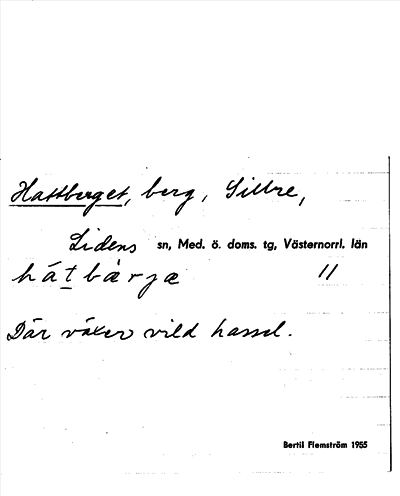 Hattberget, berg, Sillre,
Lidens sn, Med. ö. doms. tg, Västernorrl. län
hátbàrjæ 11
Där växer vild hassel.
Bertil Flemström 1955